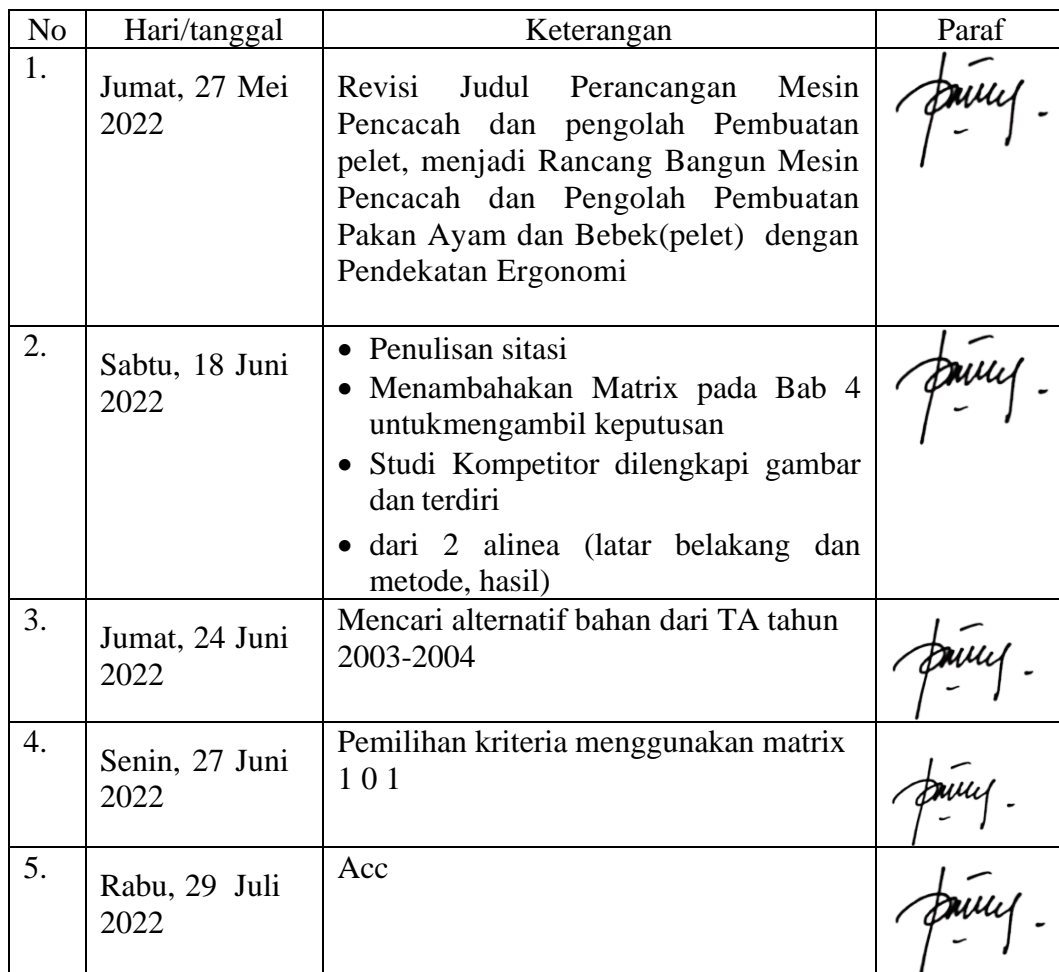 No Hari/tanggal Keterangan Paraf
1.
Jumat, 27 Mei
2022
Revisi Judul Perancangan Mesin
Pencacah dan pengolah Pembuatan
pelet, menjadi Rancang Bangun Mesin
Pencacah dan Pengolah Pembuatan
Pakan Ayam dan Bebek(pelet) dengan
Pendekatan Ergonomi
2.
Sabtu, 18 Juni
2022
• Penulisan sitasi
• Menambahakan Matrix pada Bab 4
untukmengambil keputusan
• Studi Kompetitor dilengkapi gambar
dan terdiri
• dari 2 alinea (latar belakang dan
metode, hasil)
3.
Jumat, 24 Juni
2022
Mencari alternatif bahan dari TA tahun
2003-2004
4.
Senin, 27 Juni
2022
Pemilihan kriteria menggunakan matrix
1 0 1
5.
Rabu, 29 Juli
2022
Acc